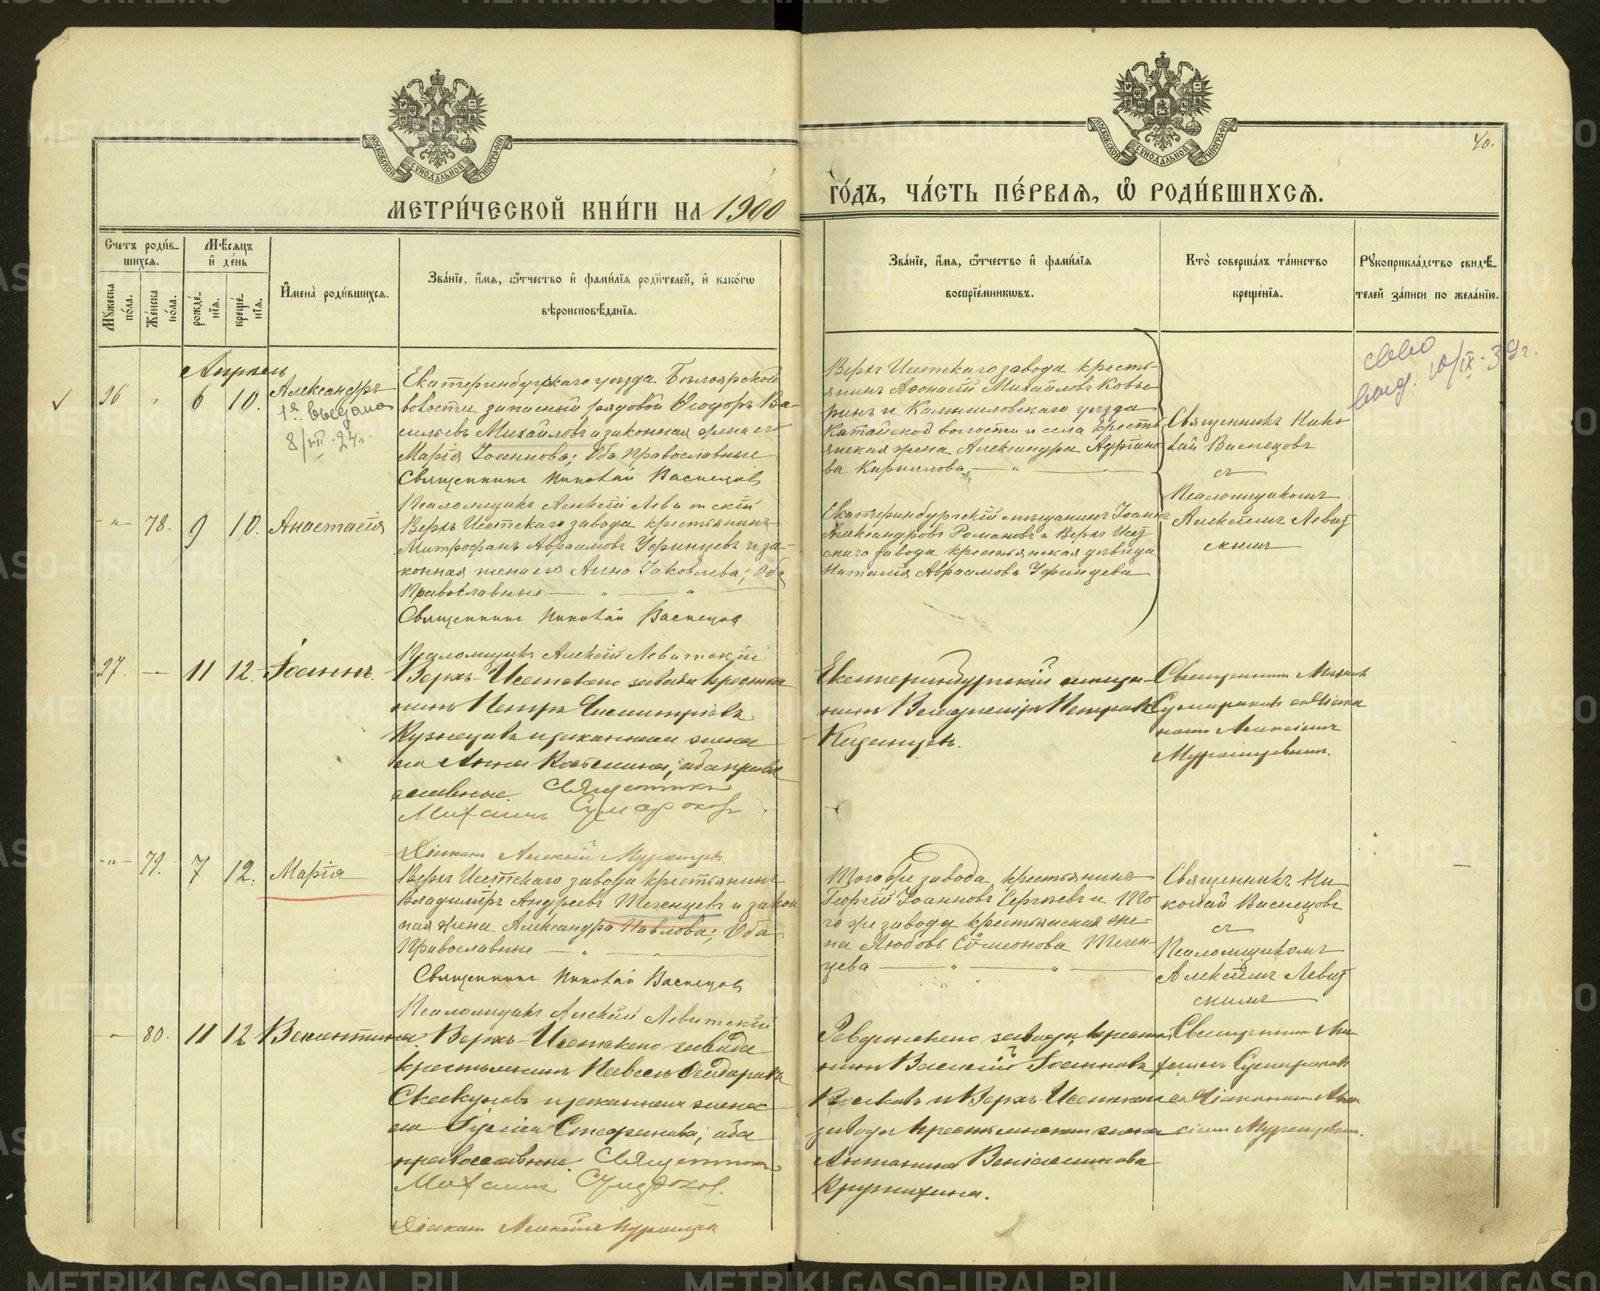 METRIKI.GASO-URAL.RU
МОСКОВСКОЙ СѴНОДАЛЬНОЙ ТИПОГРАФІИ
МОСКОВСКОЙ СѴНОДАЛЬНОЙ ТИПОГРАФІИ
40.
МЕТРИ́ЧЕСКОЙ КНИ́ГИ НА 1900
ГО́ДЪ, ЧА́СТЬ ПЕ́РВАѦ, Ѡ РОДИ́ВШИХСѦ.
Счетъ роди́в-
шихсѧ.
Му́жеска по́ла.
Же́нска по́ла.
Мѣ́сѧцъ и҆ де́нь
рожде́нїѧ.
креще́нїѧ.
И҆мена̀ роди́вшихсѧ.
Зва́нїе, и҆́мѧ, ѻ҆́тчество и҆ фами́лїѧ роди́телей, и҆ како́гѡ
вѣроисповѣ́данїѧ.
Зва́нїе, и҆́мѧ, ѻ҆́тчество и҆ фами́лїѧ
воспрїе́мникѡвъ.
Кто̀ соверша́лъ та́инство
креще́нїѧ.
Рꙋкоприкла́дство свидѣ́-
телей за́писи по жела́нїю.
Апрѣль
96 " 6 10. Александръ
8/VII-24г.
Екатеринбургскаго уѣзда Бѣлоярской
волости запасный рядовой Ѳеодоръ Ва-
сильевъ Михайловъ и законная жена его
Марія Іоаннова; Оба Православные
Священникъ Николай Васнецов
Псаломщикъ Алексій Левитскій
Верхъ Исетскаго завода кресть-
янинъ Аѳонасій Михайловъ
и Камышловскаго уѣзда
Катайской волости и села кресть
янская жена Александра
ва Кириллова
Священникъ Нико
лай Васнецовъ
съ
Псаломщикомъ
Алексіемъ Левит
скимъ
10/IX-39г.
-"- 78. 9 10. Анастасія
Верхъ Исетскаго завода крестьянинъ
Митрофанъ Авраамовъ Уфинцевъ и за-
конная жена его Анна Іаковлева; Оба
Православные
Священникъ Николай Васнецов
Псаломщикъ Алексій Левитскій
Екатеринбургскій мѣщанинъ Іоаннъ
Александровъ Романовъ и Верхъ Исет
скаго завода крестьянская дѣвица
Наталія Авраамова Уфинцева
97. — 11 12. Іоаннъ.
Верхъ-Исетскаго завода крестья
нинъ Петръ Димитріевъ
Кузнецовъ и законная жена
его Анна; оба право
славные. Священникъ
Михаилъ Сумароков
Діаконъ Алексій
Екатеринбургскій мѣща
нинъ Петровъ
Священникъ Михаилъ
Сумароковъ съ Діако
номъ Алексіемъ
-"- 79. 7 12. Марія
Верхъ Исетскаго завода крестьянинъ
Владиміръ Андреевъ Тегенцевъ и закон
ная жена Александра Павлова; Оба
Православные
Священникъ Николай Васнецов
Псаломщикъ Алексій Левитскій
Того же завода крестьянинъ
Георгій Іоанновъ Сергѣевъ и То
го же завода крестьянская же-
на Любовь Сѵмеонова Теген-
цева
Священникъ Ни
колай Васнецовъ
съ
Псаломщикомъ
Алексіемъ Левит
скимъ
— 80. 11 12 Валентина
Верхъ-Исетскаго завода
крестьянинъ Павелъ Ѳеодоровъ
и законная жена
его Стефанова; оба
православные. Священникъ
Михаилъ Сумароков.
Діаконъ Алексій
Ревдинскаго завода крестья
нинъ Василій Іоанновъ
и Верхъ-Исетскаго
завода крестьянская жена
Антонина Веніаминова
Кружихина.
Священникъ Ми
хаилъ Сумароковъ
съ Діакономъ Але
ксіемъ